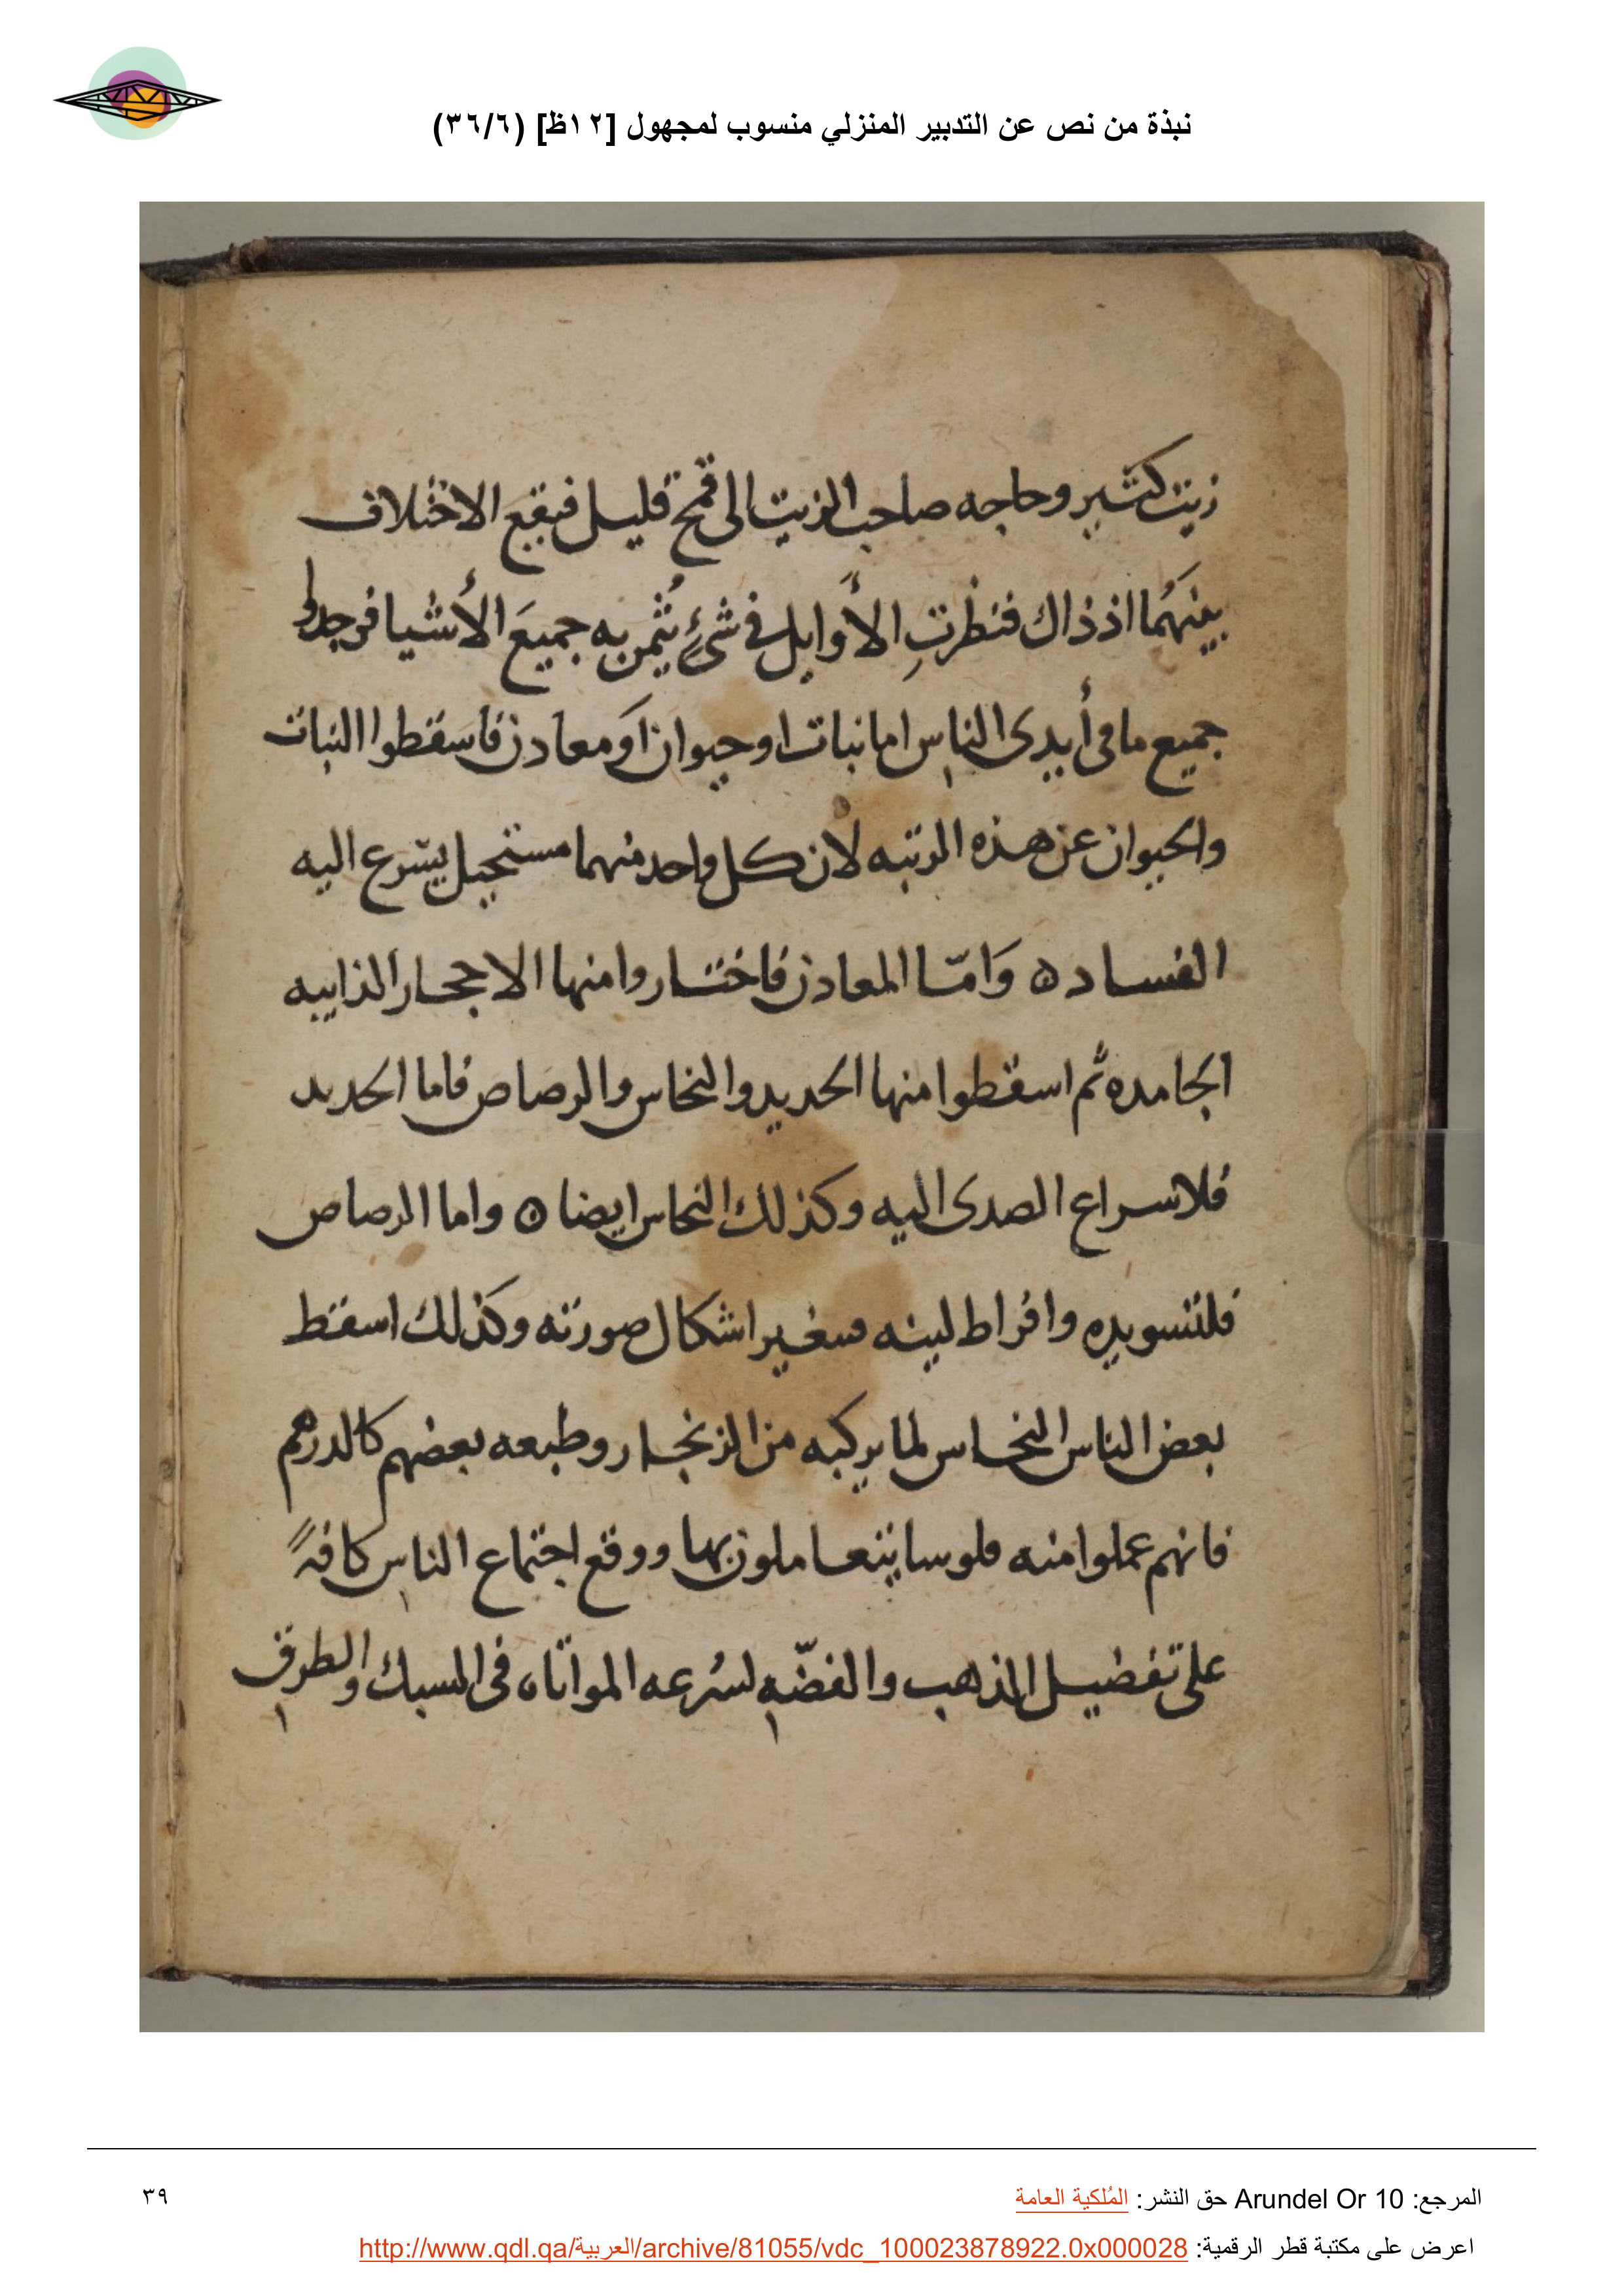 نبذة من نص عن التدبير المنزلي منسوب لمجهول [١٢ظ] (٣٦/٦)
زيت كثير وحاجه صاحب الزيت الى قمح قليل فيقع الاختلاف
بينهُما اذ ذاك فنظرتِ الأوايل في شيءٍ يُثمن به جميعَ الأشيا فوجدوا
جميع ما في أيدي الناس اما نبات او حيوان اَو معادن فاسقطوا النبات
والحيوان عن هذه الرتبه لان كل واحد منهما مستحيل يسرع اليه
الفساد ه وَامّا المعادن فاختاروا منها الاحجار الذايبه
الجامده ثم اسقطوا منها الحديد والنحاس والرصاص فاما الحديد
فلاسراع الصدى اليه وكذلك النحاس ايضا ه واما الرصاص
فلتسويده وافراط لينه فتغير اشكال صورته وكذلك اسقط
بعض الناس النحاس لما يركبه من الزنجار وطبعه بعضهم كالدرهم
فانهم عملوا منه فلوسا يتعاملون بها ووقع اجتماع الناس كافةً
على تفضيل الذهب والفضّه لسُرعه المواتاه في السبك والطرق
المرجع: Arundel Or 10 حق النشر: المُلكية العامة
٣٩
اعرض على مكتبة قطر الرقمية: http://www.qdl.qa/العربية/archive/81055/vdc_100023878922.0x000028